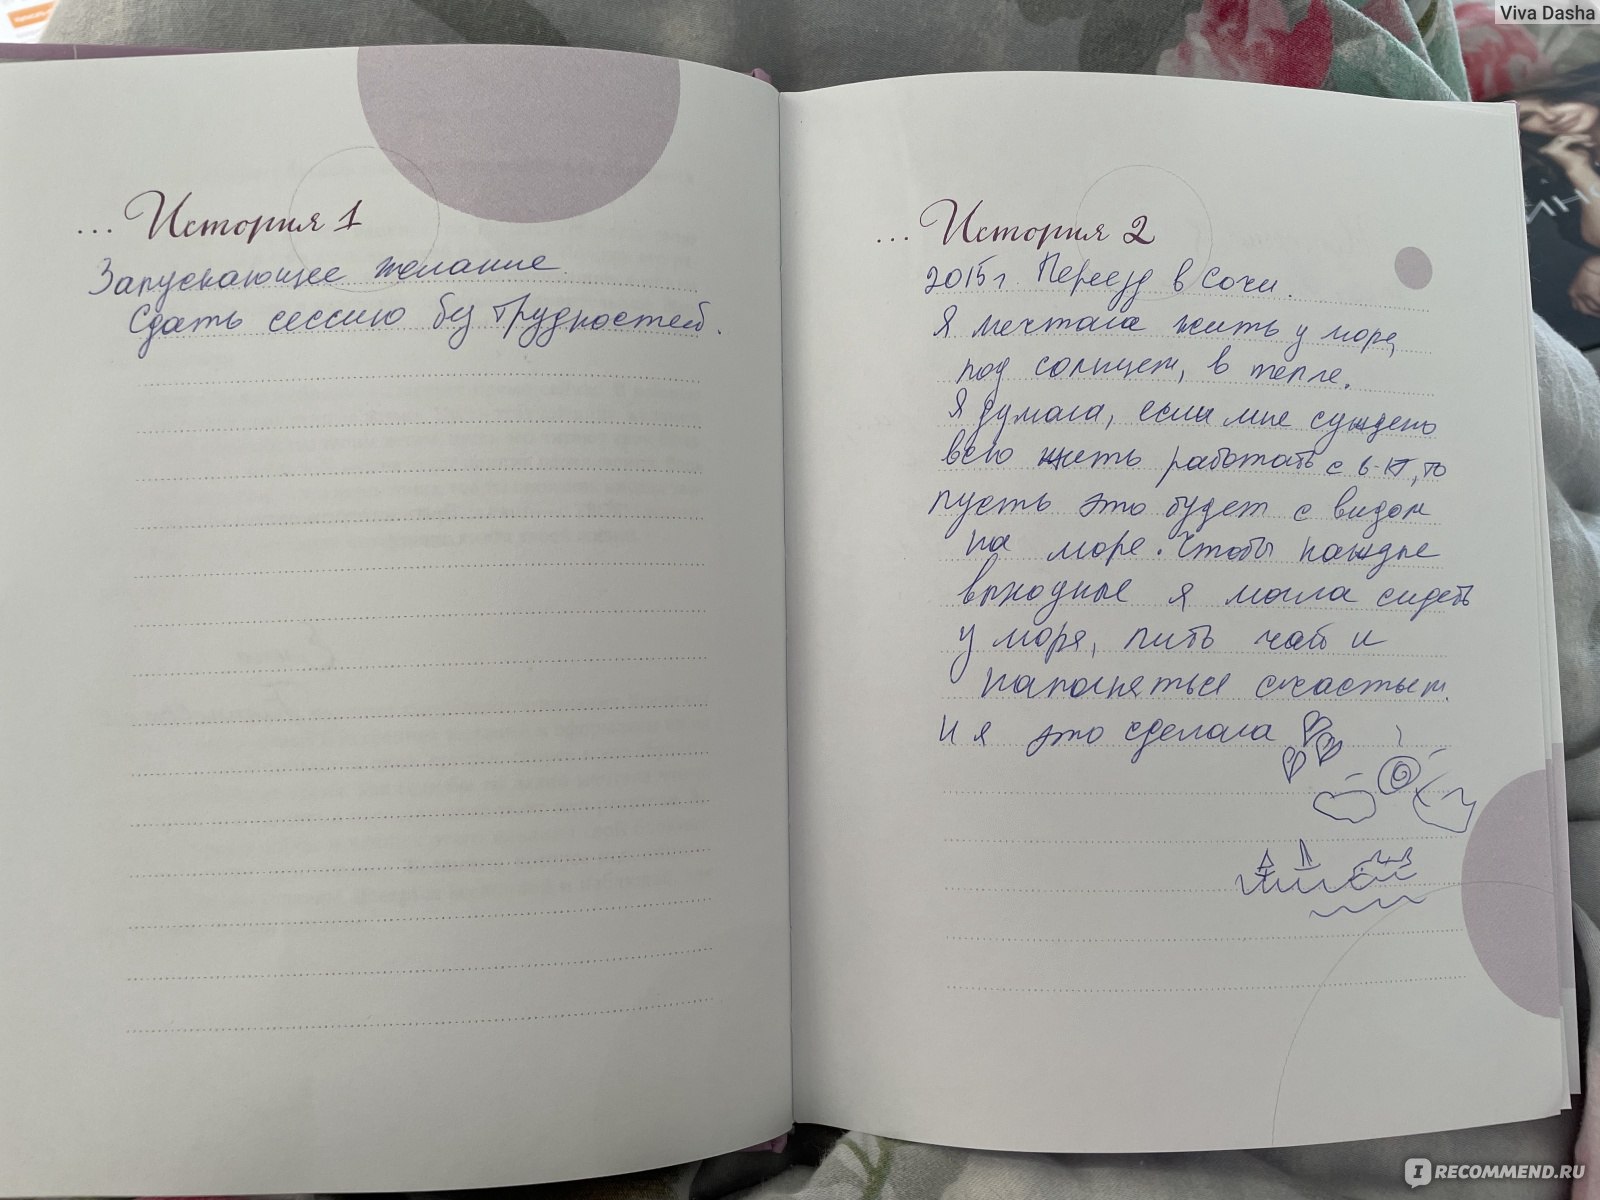 Viva Dasha
... История 1
Запускающее желание.
Сдать сессию без трудностей.
... История 2
2015г. Переезд в Сочи.
Я мечтала жить у моря,
под солнцем, в тепле.
Я думала, если мне суждено
всю жить работать с 6-ЮТ, то
пусть это будет с видом
на море. Чтобы каждые
выходные я могла сидеть
у моря, пить чай и
наполняться счастьем.
И я это сделала
IRECOMMEND.RU